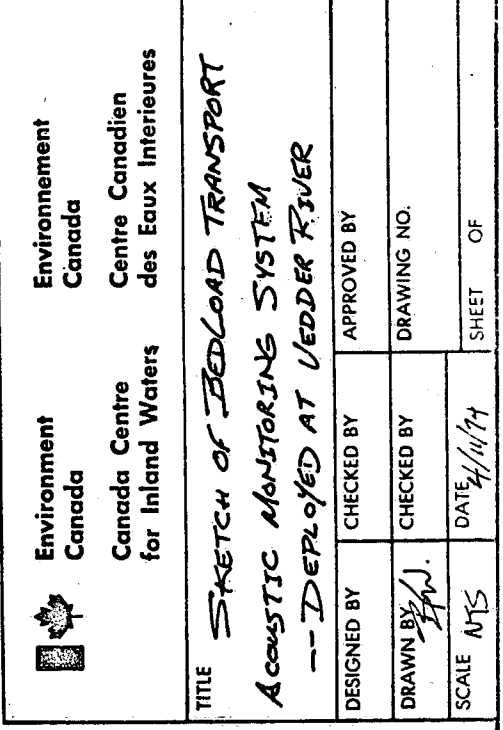 Environment Environnement
Canada Canada
Canada Centre Centre Canadien
for Inland Waters des Eaux Interieures
TITLE SKETCH OF BEDLOAD TRANSPORT
ACOUSTIC MONITORING SYSTEM
-- DEPLOYED AT VEDDER RIVER
DESIGNED BY CHECKED BY APPROVED BY
DRAWN BY CHECKED BY DRAWING NO.
SCALE NTS DATE 4/11/94 SHEET OF